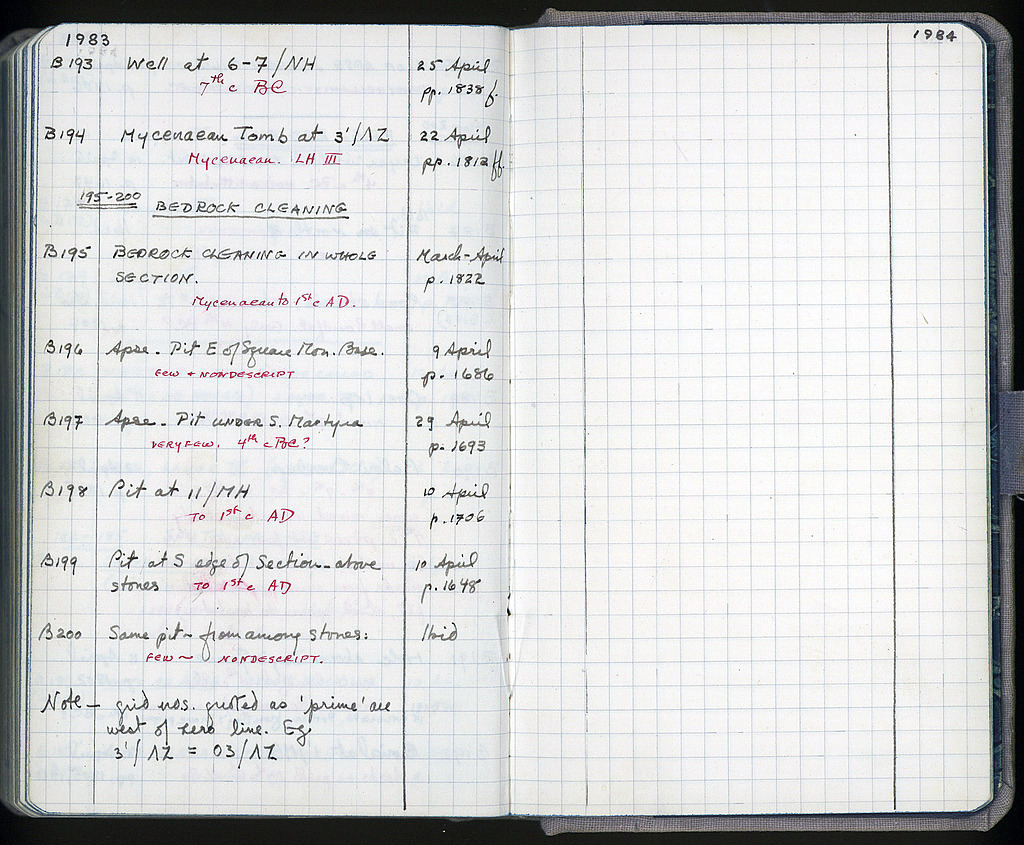 1983
B193 Well at 6-7/NH 25 April
7th c BC pp. 1838 f.
B194 Mycenaean Tomb at 3'/ΛΖ 22 April
Mycenaean. LH III pp. 1812 ff.
195-200 BEDROCK CLEANING
B195 BEDROCK CLEANING IN WHOLE March-April
SECTION. p. 1822
Mycenaean to 1st c AD.
B196 Apse - Pit E of Square Mon. Base. 9 April
FEW + NONDESCRIPT p. 1686
B197 Apse - Pit UNDER S. Martyra 29 April
VERY FEW. 4th c BC? p. 1693
B198 Pit at 11/MH 10 April
TO 1st c AD p. 1706
B199 Pit at S edge of Section - above 10 April
stones TO 1st c AD p. 1648
B200 Same pit - from among stones: Ibid
FEW ~ NONDESCRIPT.
Note - grid nos. quoted as 'prime' are
west of zero line. Eg.
3'/ΛΖ = 03/ΛΖ
1984